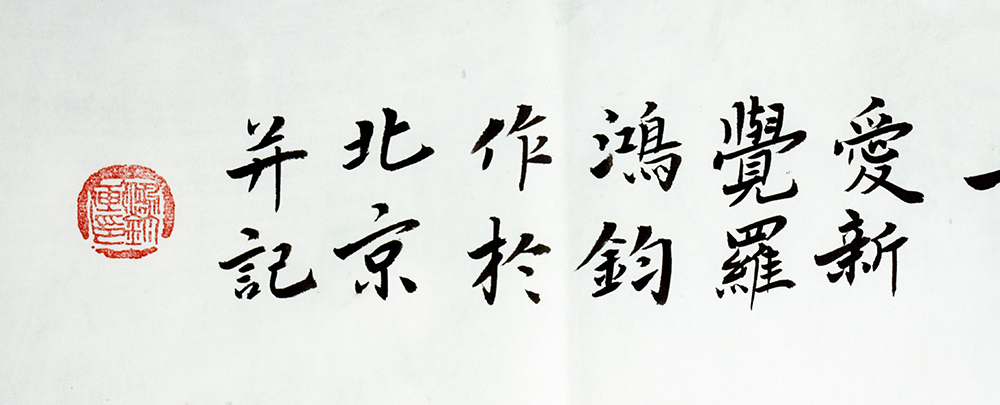 愛新
覺羅
鴻鈞
作於
北京
并記